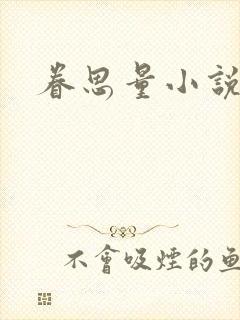 眷思量小說
不會吸煙的魚